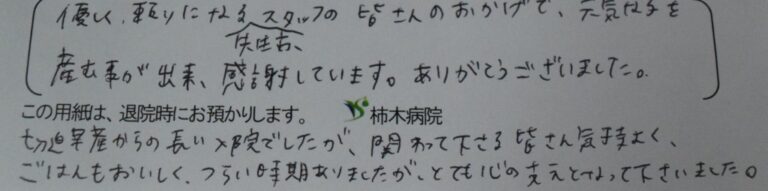 優しく、頼りになるスタッフの皆さんのおかげで、元気な子を
先生方、
産む事が出来、感謝しています。ありがとうございました。
この用紙は、退院時にお預かりします。 柿木病院
切迫早産からの長い入院でしたが、関わって下さる皆さん気持よく、
ごはんもおいしく、つらい時期ありましたが、とても心の支えとなって下さいました。